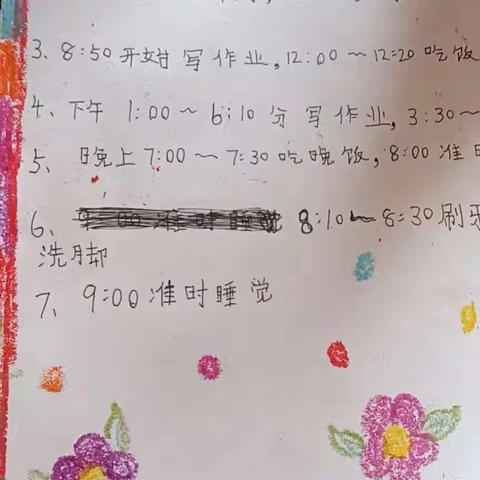 3、8:50开始写作业，12:00～12:20吃饭
4、下午 1:00～6:10分写作业，3:30～
5、晚上7:00～7:30吃晚饭，8:00准
6、9:00准时睡觉 8:10～8:30刷牙
洗脚
7、9:00准时睡觉